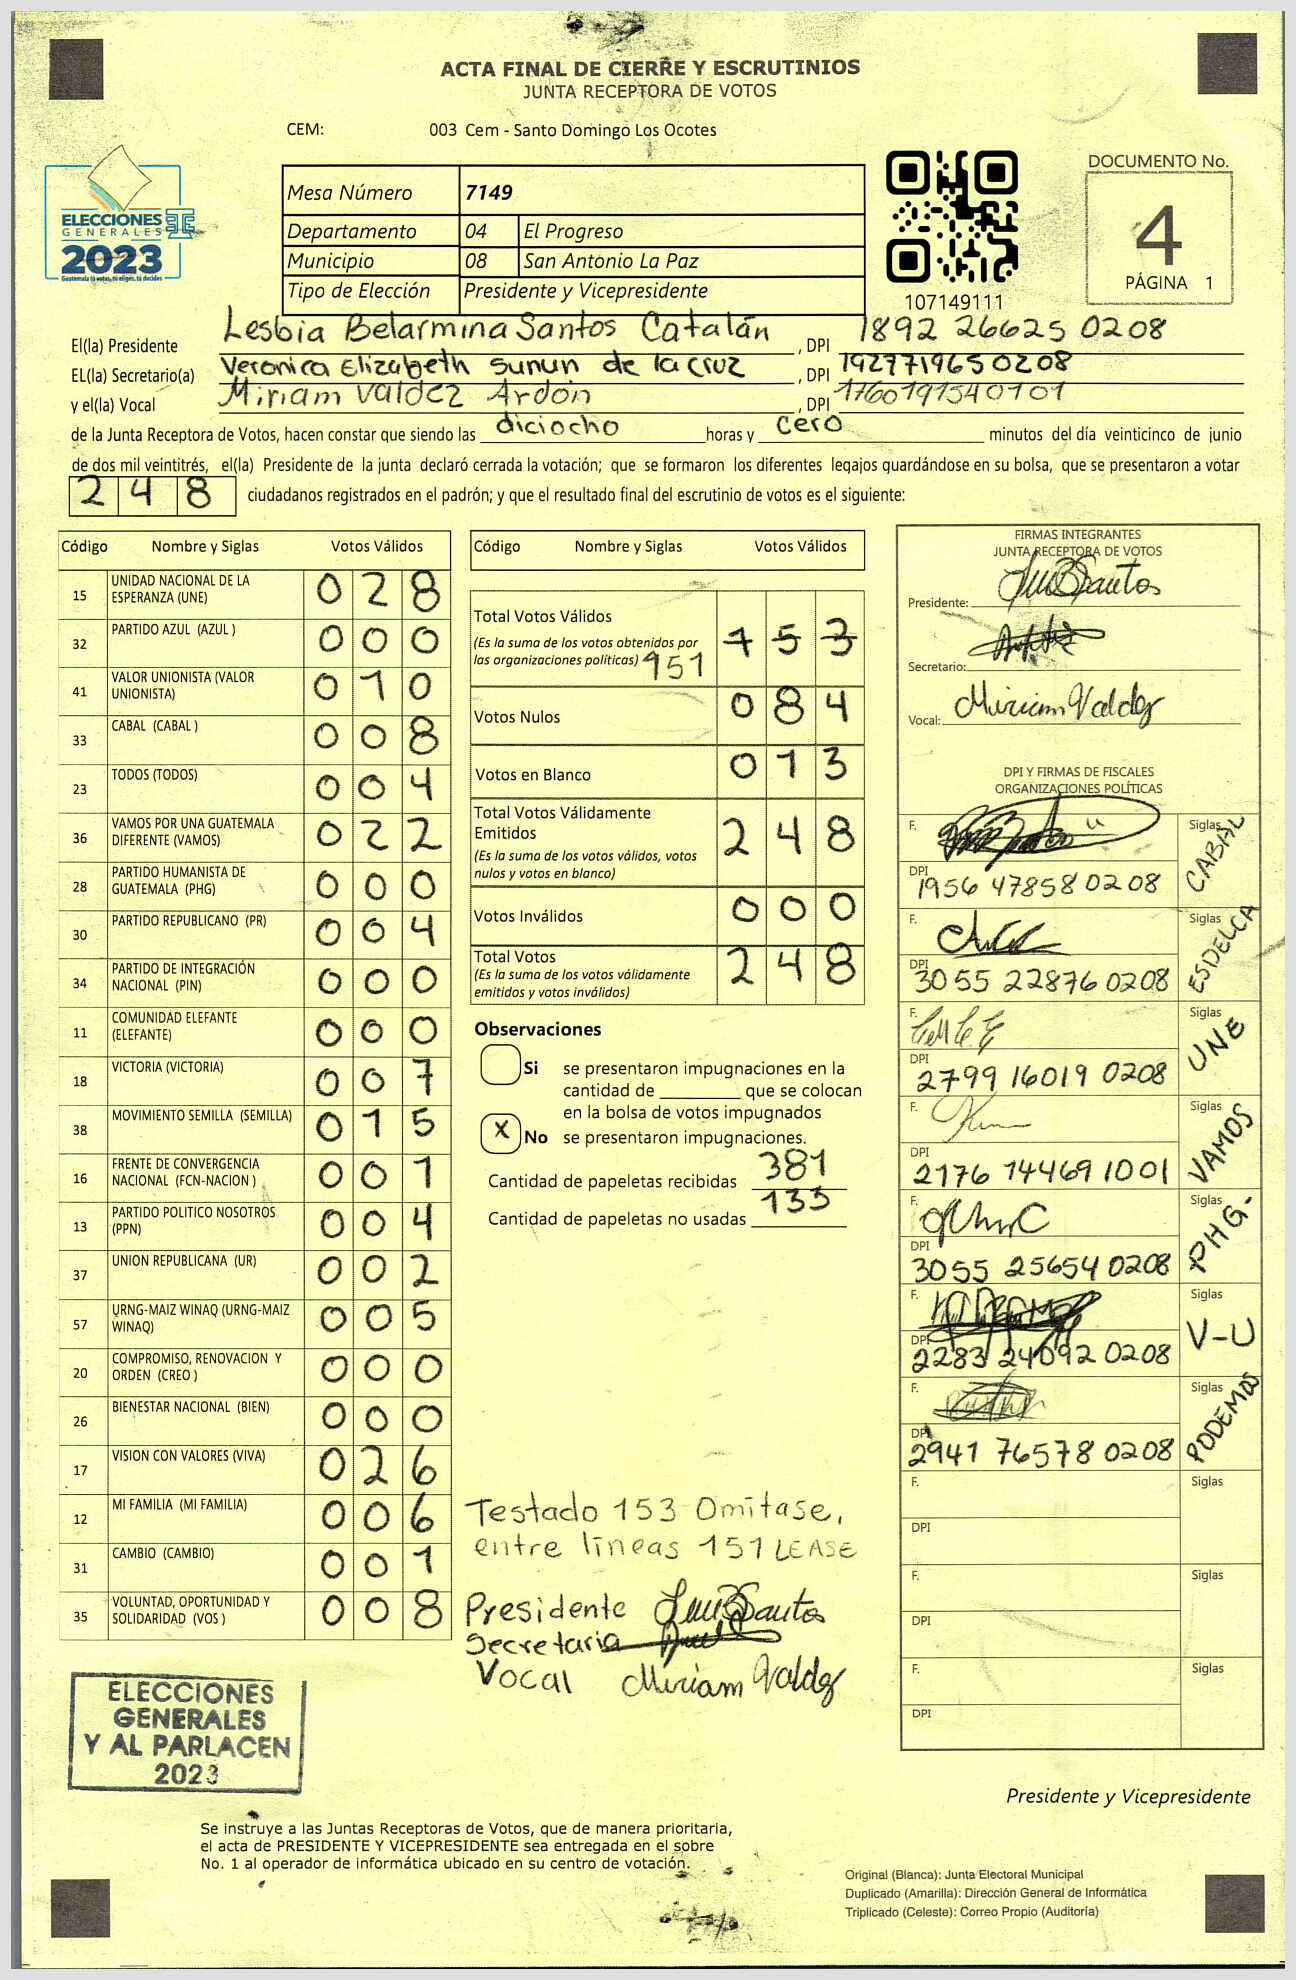 ACTA FINAL DE CIERRE Y ESCRUTINIOS
JUNTA RECEPTORA DE VOTOS
CEM: 003 Cem - Santo Domingo Los Ocotes
ELECCIONES
GENERALES
2023
Guatemala tú votas, tú eliges, tú decides
Mesa Número 7149
Departamento 04 El Progreso
Municipio 08 San Antonio La Paz
Tipo de Elección Presidente y Vicepresidente
107149111
DOCUMENTO No.
4
PÁGINA 1
El(la) Presidente Lesbia Belarmina Santos Catalán , DPI 1892 26625 0208
EL(la) Secretario(a) Veronica Elizabeth Sunun de la Cruz , DPI 1927719650208
y el(la) Vocal Miriam Valdez Ardón , DPI 1760191540101
de la Junta Receptora de Votos, hacen constar que siendo las diciocho horas y cero minutos del día veinticinco de junio
de dos mil veintitrés, el(la) Presidente de la junta declaró cerrada la votación; que se formaron los diferentes legajos guardándose en su bolsa, que se presentaron a votar
248 ciudadanos registrados en el padrón; y que el resultado final del escrutinio de votos es el siguiente:
Código Nombre y Siglas Votos Válidos
15 UNIDAD NACIONAL DE LA ESPERANZA (UNE) 028
32 PARTIDO AZUL (AZUL ) 000
41 VALOR UNIONISTA (VALOR UNIONISTA) 010
33 CABAL (CABAL ) 008
23 TODOS (TODOS) 004
36 VAMOS POR UNA GUATEMALA DIFERENTE (VAMOS) 022
28 PARTIDO HUMANISTA DE GUATEMALA (PHG) 000
30 PARTIDO REPUBLICANO (PR) 004
34 PARTIDO DE INTEGRACIÓN NACIONAL (PIN) 000
11 COMUNIDAD ELEFANTE (ELEFANTE) 000
18 VICTORIA (VICTORIA) 007
38 MOVIMIENTO SEMILLA (SEMILLA) 015
16 FRENTE DE CONVERGENCIA NACIONAL (FCN-NACION ) 001
13 PARTIDO POLITICO NOSOTROS (PPN) 004
37 UNION REPUBLICANA (UR) 002
57 URNG-MAIZ WINAQ (URNG-MAIZ WINAQ) 005
20 COMPROMISO, RENOVACION Y ORDEN (CREO ) 000
26 BIENESTAR NACIONAL (BIEN) 000
17 VISION CON VALORES (VIVA) 026
12 MI FAMILIA (MI FAMILIA) 006
31 CAMBIO (CAMBIO) 001
35 VOLUNTAD, OPORTUNIDAD Y SOLIDARIDAD (VOS ) 008
Código Nombre y Siglas Votos Válidos
Total Votos Válidos 153
(Es la suma de los votos obtenidos por
las organizaciones políticas) 151
Votos Nulos 084
Votos en Blanco 013
Total Votos Válidamente
Emitidos 248
(Es la suma de los votos válidos, votos
nulos y votos en blanco)
Votos Inválidos 000
Total Votos 248
(Es la suma de los votos válidamente
emitidos y votos inválidos)
Observaciones
Si se presentaron impugnaciones en la
cantidad de ________ que se colocan
en la bolsa de votos impugnados
X No se presentaron impugnaciones.
Cantidad de papeletas recibidas 381
Cantidad de papeletas no usadas 133
Testado 153 Omitase,
entre lineas 151 LEASE
Presidente
Secretaria
Vocal Miriam Valdez
FIRMAS INTEGRANTES
JUNTA RECEPTORA DE VOTOS
Presidente:
Secretario:
Vocal: Miriam Valdez
DPI Y FIRMAS DE FISCALES
ORGANIZACIONES POLÍTICAS
F. Siglas CABAL
DPI 1956 47858 0208
F. Siglas ESDELCA
DPI 3055 22876 0208
F. Siglas UNE
DPI 2799 16019 0208
F. Siglas VAMOS
DPI 2176 14469 1001
F. Siglas PHG-
DPI 3055 25654 0208
F. Siglas V-U
DPI 2283 24092 0208
F. Siglas PODEMOS
DPI 2941 76578 0208
F. Siglas
DPI
F. Siglas
DPI
F. Siglas
DPI
ELECCIONES
GENERALES
Y AL PARLACEN
2023
Presidente y Vicepresidente
Se instruye a las Juntas Receptoras de Votos, que de manera prioritaria,
el acta de PRESIDENTE Y VICEPRESIDENTE sea entregada en el sobre
No. 1 al operador de informática ubicado en su centro de votación.
Original (Blanca): Junta Electoral Municipal
Duplicado (Amarilla): Dirección General de Informática
Triplicado (Celeste): Correo Propio (Auditoría)